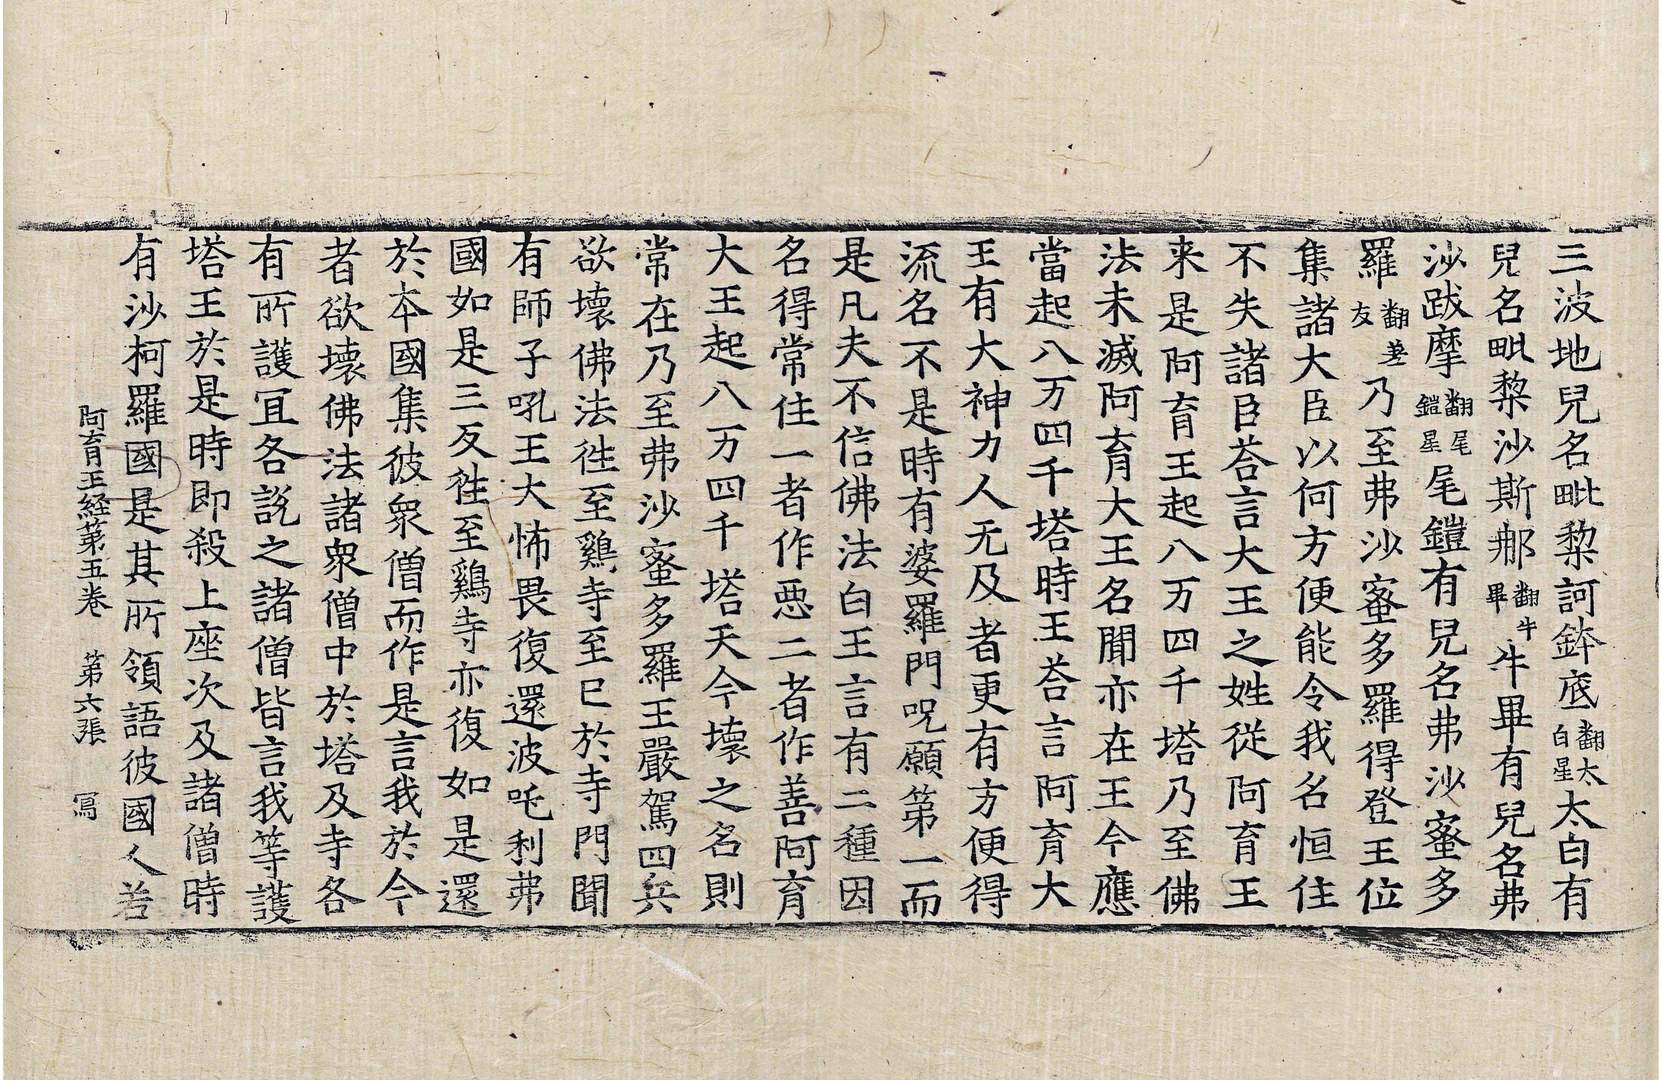 三波地兒名毗黎訶鉢底翻太白星太白有
兒名毗黎沙斯那翻牛畢牛畢有兒名弗
沙跋摩翻尾鎧星尾鎧有兒名弗沙蜜多
羅翻友乃至弗沙蜜多羅得登王位
集諸大臣以何方便能令我名恒住
不失諸臣荅言大王之姓従阿育王
来是阿育王起八万四千塔乃至佛
法未滅阿育大王名聞亦在王今應
當起八万四千塔時王荅言阿育大
王有大神力人无及者更有方便得
流名不是時有婆羅門呪願第一而
是凡夫不信佛法白王言有二種因
名得常住一者作惡二者作善阿育
大王起八万四千塔天今壞之名則
常在乃至弗沙蜜多羅王嚴駕四兵
欲壞佛法徃至鷄寺至已於寺門聞
有師子吼王大怖畏復還波吒利弗
國如是三反徃至鷄寺亦復如是還
於本國集彼衆僧而作是言我於今
者欲壞佛法諸衆僧中於塔及寺各
有所護冝各說之諸僧皆言我等護
塔王於是時即殺上座次及諸僧時
有沙柯羅國是其所領語彼國人若
阿育王経第五巻　第六張　冩